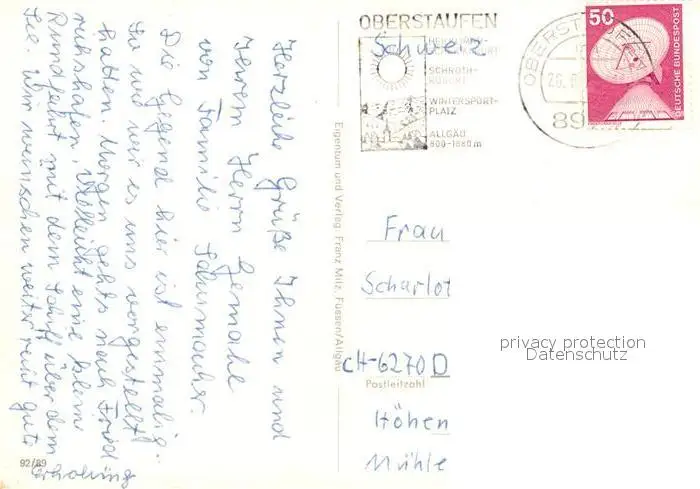 OBERSTAUFEN
HEILKLIMA-
KURORT
SCHROTH-
KURORT
WINTERSPORT-
PLATZ
ALLGÄU
800-1880 m
OBERSTAUFEN
89
50
DEUTSCHE BUNDESPOST
Schweiz
Herzliche Grüße Ihnen und
Ihrem Herrn Gemahl
von Familie
Die Gegend hier ist einmalig.
So wie wir es uns vorgestellt
hatten. Morgen gehts nach Fried
richshafen. Vielleicht eine kleine
Rundfahrt mit dem Schiff über den
See. Wir wünschen weiter recht gute
Erholung
Eigentum und Verlag: Franz Milz, Füssen/Allgäu
Frau
Scharlot
CH-6270 D
Postleitzahl
Höhen
Mühle
92/89
privacy protection
Datenschutz